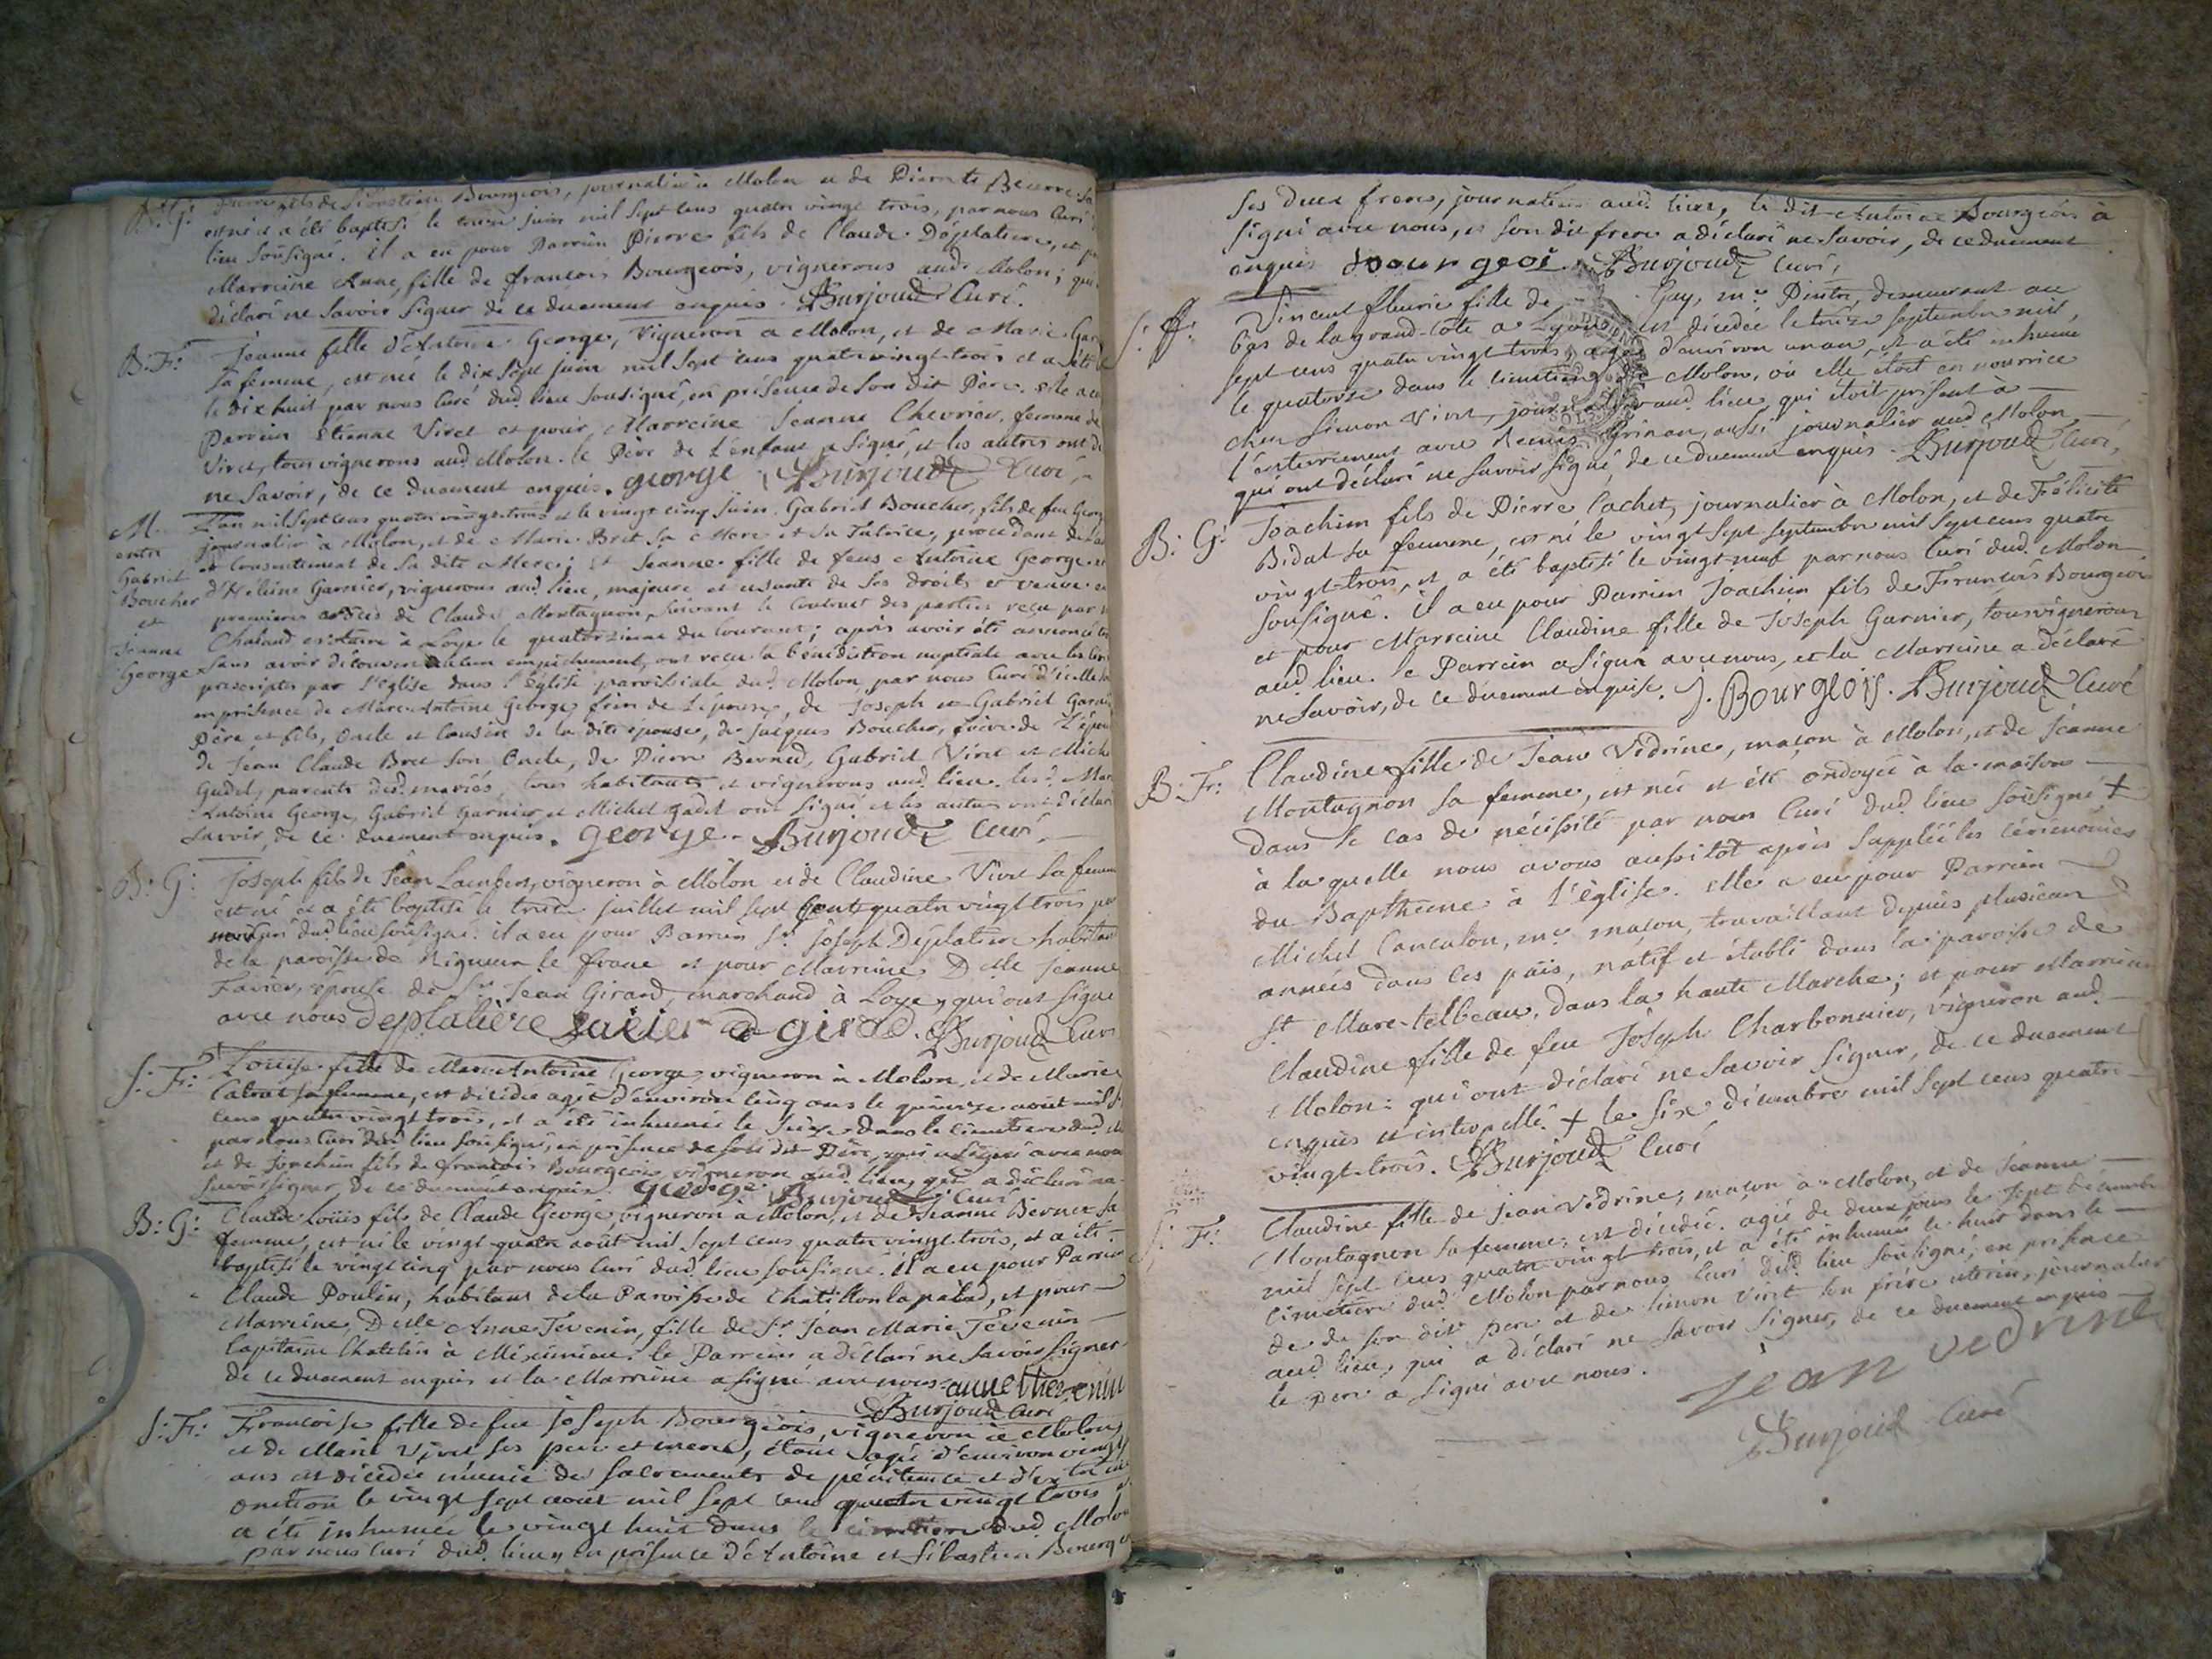 B: G: Pierre fils de Sébastien Bourgeois, journalier à Molon et de Pierrette Beurre sa
est né et a été baptisé le treize juin mil sept cens quatre vingt trois, par nous Curé
lieu soûsigné. il a eu pour Parrein Pierre fils de Claude Déplatiere, et
Marreine Anne, fille de françois Bourgeois, vignerons aud. Molon; qui
déclaré ne savoir signer de ce duement enquis. Burjoud Curé.
B: Fe: Jeanne fille d'Antoine George, Vigneron à Molon, et de Marie Gar
sa femme, est née le dix sept juin mil sept cens quatre vingt-trois et a été
le dix huit par nous Curé dud. lieu soûsigné, en présence de son dit Père. elle a eu
Parrein Etienne Viret et pour Marreine Jeanne Chevrier, femme de
Viret, tous vignerons aud. Molon. le Père de l'enfant a signé, et les autres ont dé
ne savoir, de ce duement enquis. george Burjoud Curé
M. L'an mil sept cens quatre vingt-trois et le vingt cinq juin. Gabriel Boucher, fils de feu Georg
entre journalier à Molon, et de Marie Bret sa Mere et sa Tutrice, procédant de
Gabriel et consentement de sa dite Mere; et Jeanne fille de feus Antoine George
Boucher d'Hélène Garnier, vignerons aud. lieu, majeure et usante de ses droits et veuve en
et premieres nôces de Claude Montagnon, suivant le contract des parties reçu par
Jeanne Chaland notaire à Loye le quatorzieme du courant; après avoir été annoncé
George sans avoir découvert aucun empêchement, ont reçu la bénédiction nuptiale avec les
prescriptes par l'église dans l'église paroissiale dud. Molon, par nous Curé d'icelle
en présence de Marc-Antoine George frère de l'épouse, de Joseph et Gabriel Garnier
Père et fils, Oncle et Cousin de la dite épouse, de Jacques Boucher, frère de l'épou
de Jean Claude Bret son Oncle, de Pierre Bernud, Gabriel Viret et Miche
Gudet, parents desd. mariés, tous habitants et vignerons aud. lieu. lesd. Marc
Antoine George, Gabriel Garnier et Michel Gadet ont signé et les autres ont déclaré
savoir, de ce duement enquis. george. Burjoud Curé
B: G: Joseph fils de Jean Lambert, vigneron à Molon et de Claudine Viret sa femme
est né et a été baptisé le treize juillet mil sept cent quatre vingt trois par
Curé dud. lieu soûsigné. il a eu pour Parrein Sr. Joseph Déplatiere habitant
de la paroisse de Rigneux le franc et pour Marreine Delle Jeanne
Favier, épouse de Sr. Jean Girard, marchand à Loye, qui ont signé
avec nous deplatière favier girard. Burjoud Curé
S: Fe: Louise fille de Marc-Antoine George vigneron à Molon, et de Marie
Catrat sa femme, est décédée agée d'environ cinq ans le quinze août mil
cens quatre vingt trois, et a été inhumée le seize dans le cimetiere dud.
par nous Curé dud. lieu soûsigné, en présence de son dit Père, qui a signé avec nous
et de Joachim fils de françois Bourgeois vigneron aud. lieu, qui a déclaré ne
savoir signer, de ce duement enquis. george Burjoud Curé
B: G: Claude Loüis fils de Claude George, vigneron à Molon, et de Jeanne Bernet sa
femme, est né le vingt-quatre août mil sept cens quatre vingt-trois, et a été
baptisé le vingt cinq par nous Curé dud. lieu soûsigné. il a eu pour Parrein
Claude Poulin, habitant de la Paroisse de Chatillon la palud, et pour
Marreine, Delle Anne Tévenin, fille de Sr. Jean Marie Tévenin
Capitaine Chatelin à Méximieu. le Parrein a déclaré ne savoir signer
de ce duement enquis et la Marreine a signé avec nous. anne thevenin
Burjoud Curé
S: Fe: Françoise fille de feu Joseph Bourgeois, vigneron à Molon
et de Marie Viret ses pere et mere, étant agée d'environ vingt
ans est décédée munie des sacrements de pénitence et d'extrême
onction le vingt sept août mil sept cens quatre vingt trois et
a été inhumée le vingt huit dans le cimetiere dud. Molon
par nous Curé dud. lieu, en présence d'Antoine et Sébastien Bourge
ses deux freres, journaliers aud. lieu, le dit Antoine Bourgeois a
signé avec nous, et son dit frere a déclaré ne savoir, de ce duement
enquis bourgeoi. Burjoud Curé,
S: ff: Vincent fleurie fille de Guy, me. Peintre, demeurant au
bas de la grand-côte a Lyon, est décédée le treize septembre mil
sept cens quatre vingt trois, agée d'environ un an, et a été inhumée
le quatorze dans le cimetiere de Molon, où elle étoit en nourrice
chez Simon Viret, journalier aud. lieu, qui étoit présent à
l'enterrement avec Remis Grinan, aussi journalier aud. Molon
qui ont déclaré ne savoir signé, de ce duement enquis. Burjoud Curé,
B: G: Joachim fils de Pierre Cachet, journalier à Molon, et de Félicité
Bidat sa femme, est né le vingt sept septembre mil sept cens quatre
vingt-trois, et a été baptisé le vingt-neuf par nous Curé dud. Molon
soûsigné. il a eu pour Parrein Joachim fils de François Bourgeois
et pour Marreine Claudine fille de Joseph Garnier, tous vignerons
aud. lieu. le Parrein a signé avec nous, et la Marreine a déclaré
ne savoir, de ce duement enquise. J. Bourgeois. Burjoud Curé
B: Fe: Claudine fille de Jean Vidrine, maçon à Molon, et de Jeanne
Montagnon sa femme, est née et été ondoyée à la maison
dans le cas de nécessité par nous Curé dud. lieu soûsigné +
à la quelle nous avons aussitôt après suppléé les cérémonies
du Baptheme à l'église. elle a eu pour Parrein
Michel Canculon, me. maçon, travaillant depuis plusieur
années dans les païs, natif et établi dans la paroisse de
St. Marc-telbeau, dans la haute Marche; et pour Marreine
Claudine fille de feu Joseph Charbonnier, vigneron aud.
Molon: qui ont déclaré ne savoir signer, de ce duement
enquis et interpellé. + le six décembre mil sept cens quatre
vingt-trois. Burjoud Curé
S: Fe: Claudine fille de Jean Vidrine, maçon à Molon, et de Jeanne
Montagnon sa femme, est décédée agée de deux jours le sept décembre
mil sept cens quatre vingt trois, et a été inhumée le huit dans le
cimetiere dud. Molon par nous Curé dud. lieu soûsigné, en présence
de de son dit pere et de Simon Viret son frère uterin, journalier
aud. lieu, qui a déclaré ne savoir signer, de ce duement enquis
le pere a signé avec nous. jean vedrine
Burjoud Curé